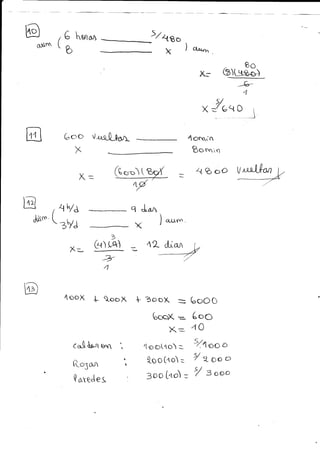 10
6 horas ——— S/480
aum ( 8 ——— X ) aum.
X = (8)(480) 80
6
1
X = S/640
11
600 vueltas ——— 10min
X ——— 80min
X = (600)(80) / 10 = 4800 vueltas
12
4h/d ——— 9 días
dism. ( 3h/d ——— X ) aum.
X = (4)(9) 3 = 12 días
3
1
13
100X + 200X + 300X = 6000
600X = 600
X = 10
Calderón : 100(10) = S/1000
Rojas : 200(10) = S/2000
Paredes : 300(10) = S/3000